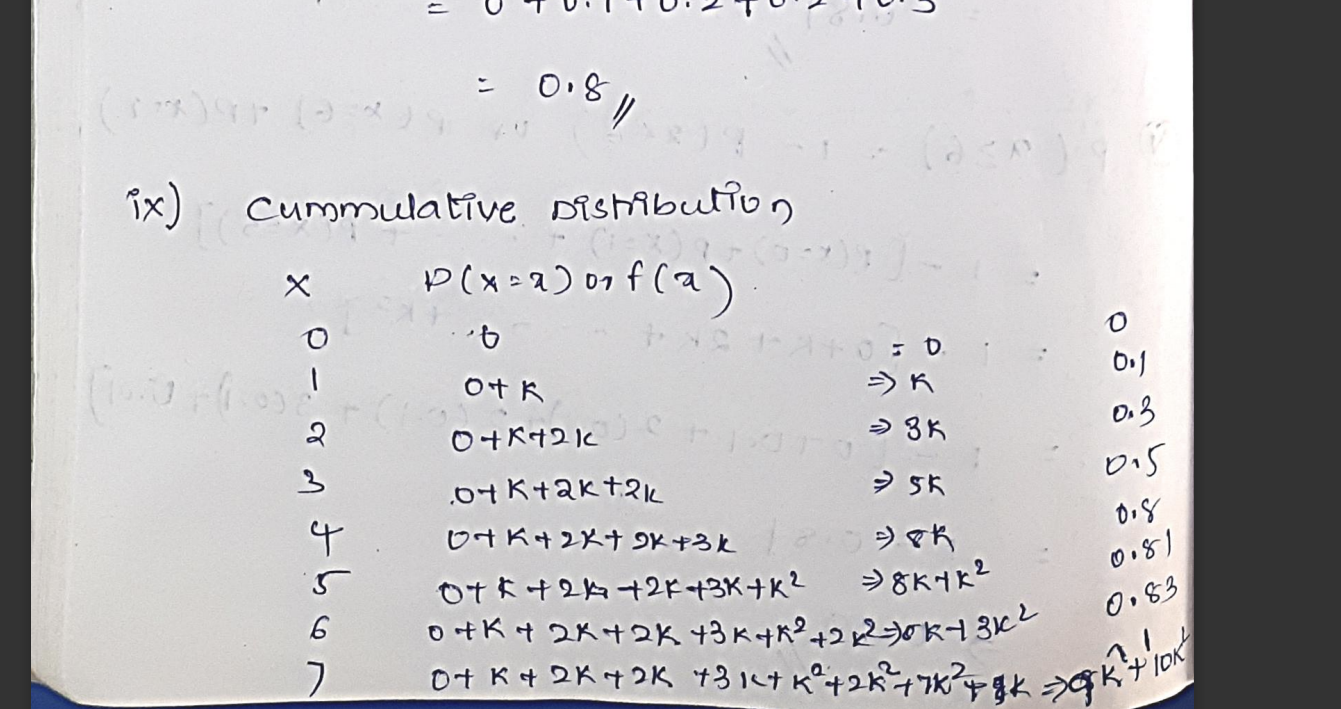 = 0+0.1+0.2+0.2+0.3
= 0.8 //
ix) Cummulative Distribution
x P(x=x) or f(x)
0 0 = 0 0
1 0+K => K 0.1
2 0+K+2K => 3K 0.3
3 0+K+2K+2K => 5K 0.5
4 0+K+2K+2K+3K => 8K 0.8
5 0+K+2K+2K+3K+K² => 8K+K² 0.81
6 0+K+2K+2K+3K+K²+2K² => 8K+3K² 0.83
7 0+K+2K+2K+3K+K²+2K²+7K²+K => 9K+10K² 1